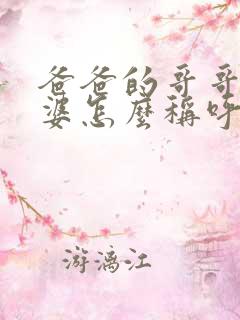 爸爸的哥哥
婆怎麼稱呼
游漓江